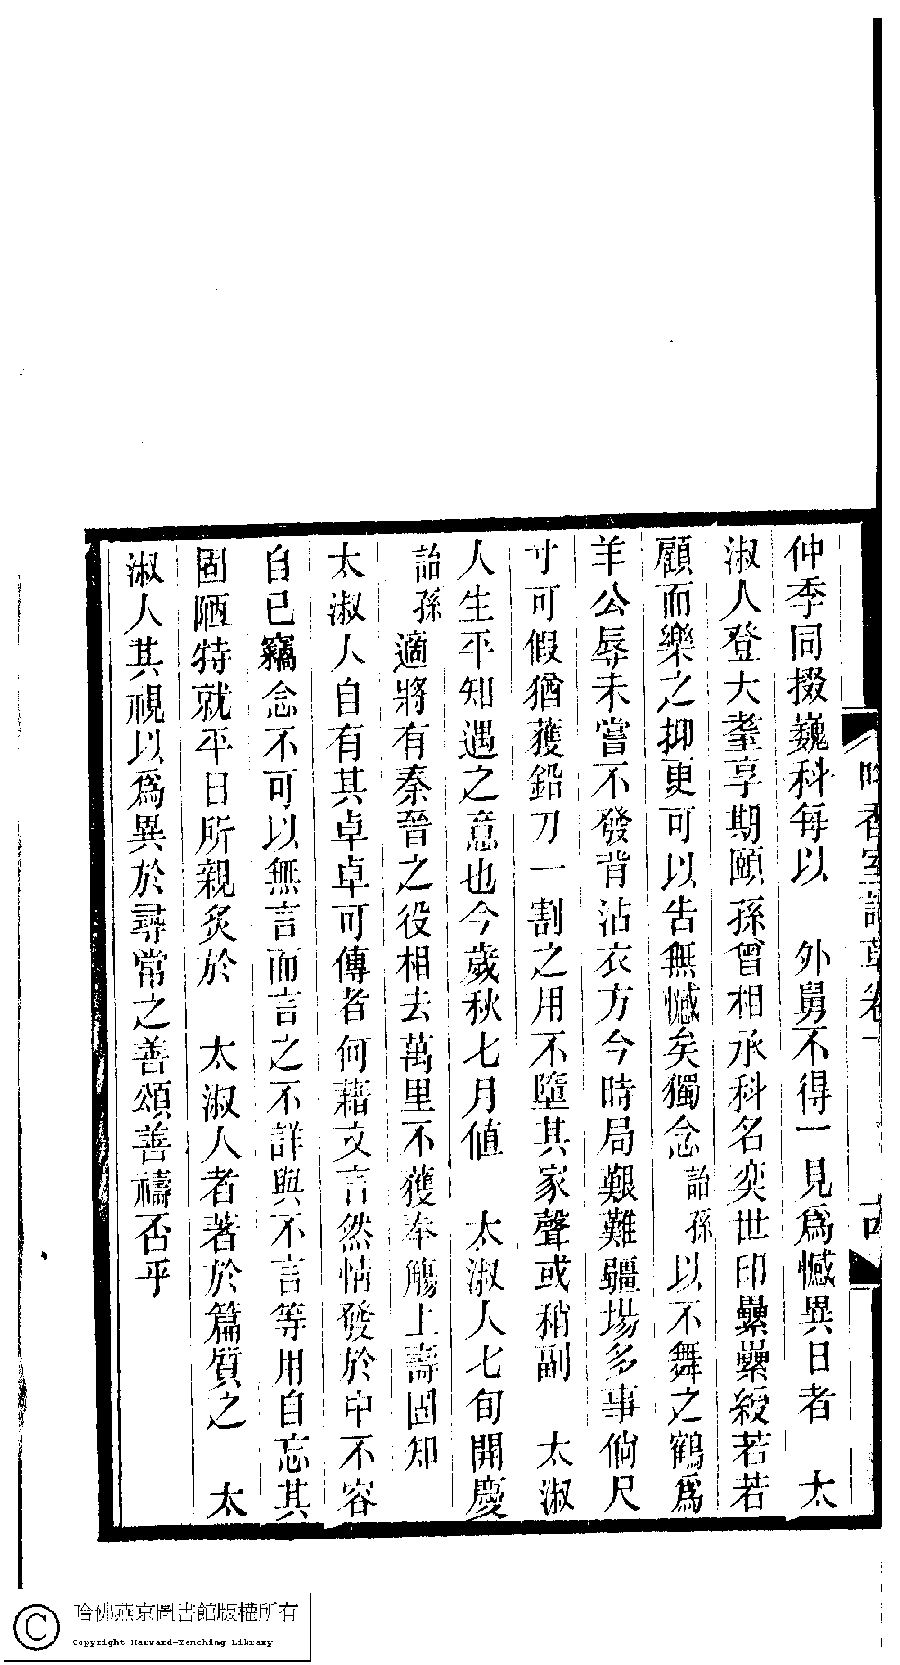 香室詩草卷一
仲季同掇巍科每以　外舅不得一見爲憾異日者　太
淑人登大耋享期頤孫曾相承科名奕世印纍纍綬若若
顧而樂之抑更可以告無憾矣獨念詒孫以不舞之鶴爲
羊公辱未嘗不發背沾衣方今時局艱難疆場多事倘尺
寸可假猶獲鉛刀一割之用不墮其家聲或稍副　太淑
人生平知遇之意也今歲秋七月値　太淑人七旬開慶
詒孫適將有秦晉之役相去萬里不獲奉觴上壽固知
太淑人自有其卓卓可傳者何藉文言然情發於中不容
自已竊念不可以無言而言之不詳與不言等用自忘其
固陋特就平日所親炙於　太淑人者著於篇質之　太
淑人其視以爲異於尋常之善頌善禱否乎
哈佛燕京圖書館版權所有
Copyright Harvard-Yenching Library